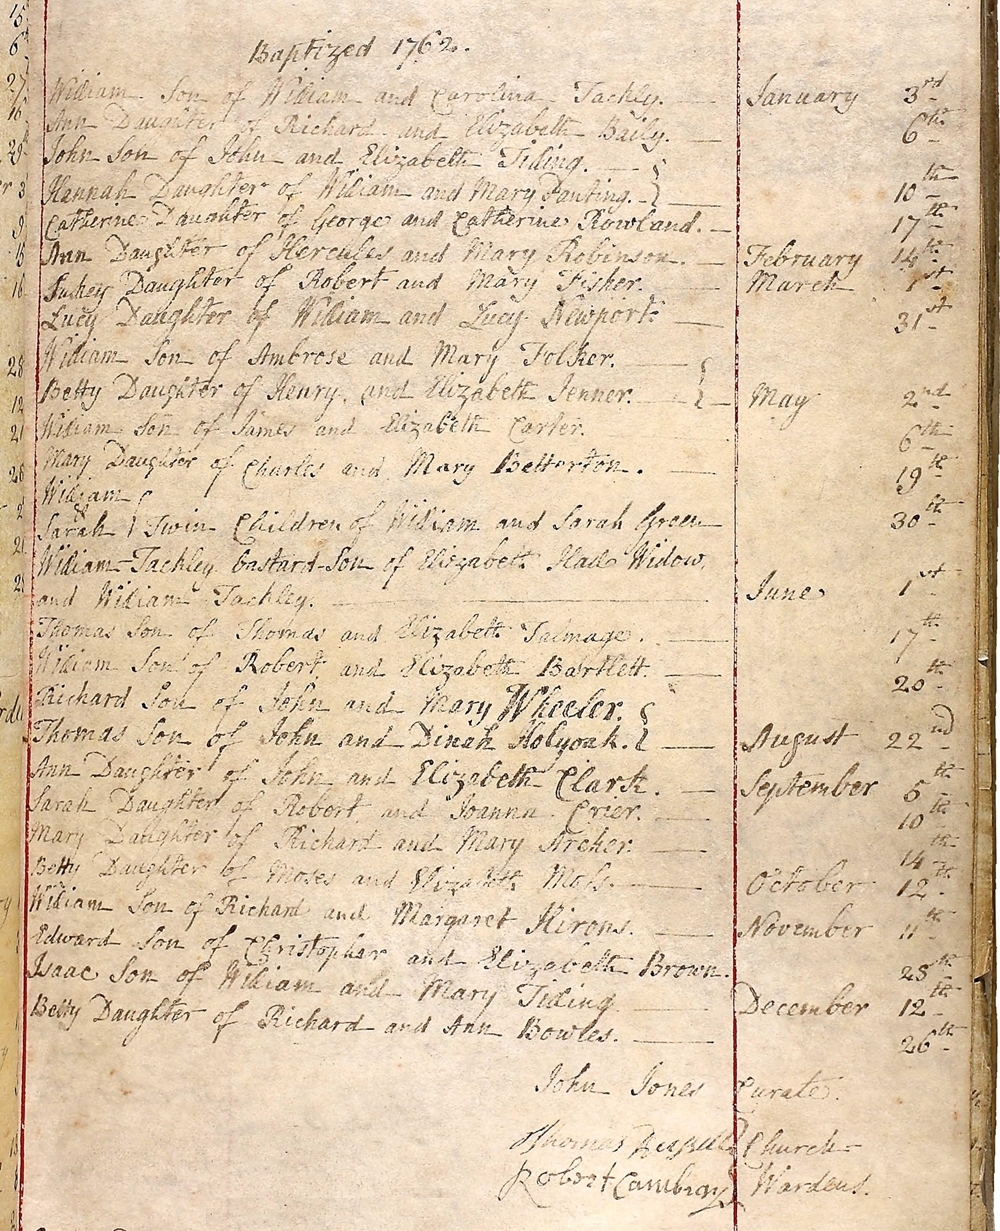 Baptized 1762.
William Son of William and Carolina Tackly. January 3rd
Ann Daughter of Richard and Elizabeth Baily. 6th
John Son of John and Elizabeth Tiding.
Hannah Daughter of William and Mary Panting. 10th
Catherine Daughter of George and Catherine Rowland. 17th
Ann Daughter of Hercules and Mary Robinson. February 14th
Suckey Daughter of Robert and Mary Fisher. March 1st
Lucy Daughter of William and Lucy Newport. 31st
William Son of Ambrose and Mary Folker.
Betty Daughter of Henry and Elizabeth Jenner. May 2nd
William Son of James and Elizabeth Carter. 6th
Mary Daughter of Charles and Mary Betterton. 19th
William
& Sarah } Twin Children of William and Sarah Green 30th
William Tackley bastard Son of Elizabeth Widow,
and William Tackley. June 1st
Thomas Son of Thomas and Elizabeth Talmage. 17th
William Son of Robert and Elizabeth Bartlett. 20th
Richard Son of John and Mary Wheeler.
Thomas Son of John and Dinah Holyoak. August 22nd
Ann Daughter of John and Elizabeth Clark. September 5th
Sarah Daughter of Robert and Joanna Crier. 10th
Mary Daughter of Richard and Mary Archer. 14th
Betty Daughter of Moses and Elizabeth Moss. October 12th
William Son of Richard and Margaret Hirons. November 11th
Edward Son of Christopher and Elizabeth Brown. 28th
Isaac Son of William and Mary Tiding December 12th
Betty Daughter of Richard and Ann Bowles. 26th
John Jones Curate.
Thomas Church-
Robert Cambray Wardens.